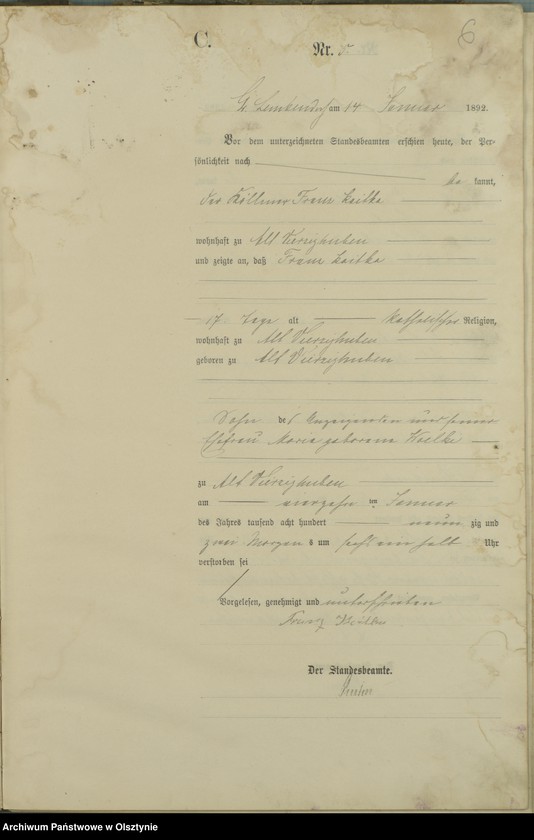 C.
6
Nr. 5
Gr. Lemkendorf am 14 Januar 1892.
Vor dem unterzeichneten Standesbeamten erschien heute, der Per-
sönlichkeit nach
be kannt,
der Köllmer Franz
wohnhaft zu Alt Vierzighuben
und zeigte an, daß Franz
17 Tage alt katholischer Religion,
wohnhaft zu Alt Vierzighuben
geboren zu Alt Vierzighuben
Sohn des Anzeigenden und seiner
Ehefrau Maria geborene
zu Alt Vierzighuben
am vierzehn ten Januar
des Jahres tausend acht hundert neun zig und
zwei Morgens um sechs ein halb Uhr
verstorben sei
Vorgelesen, genehmigt und unterschrieben
Franz
Der Standesbeamte.
Archiwum Państwowe w Olsztynie